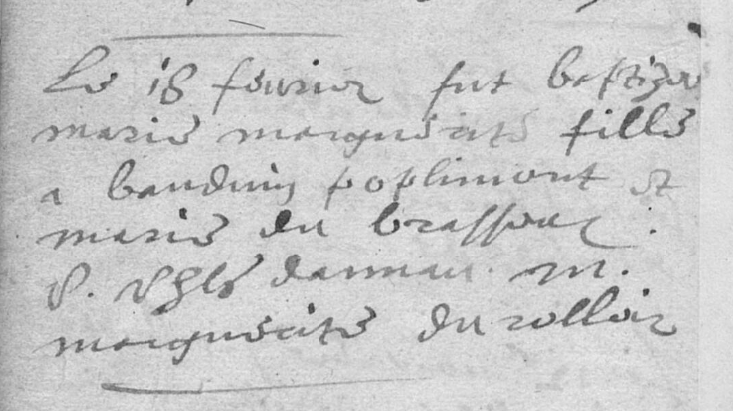 Le 18 feurier fut baptizee
marie marguerite fille
a bauduin poplimont et
marie du brassear.
P. Phls dannau. m.
marguerite du rolloir